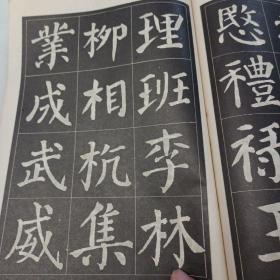 禮
理班李林
柳相杭集
業成武威